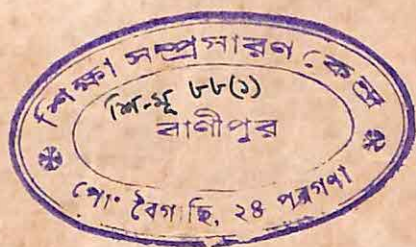 শিক্ষা সম্প্রসারণ কেন্দ্র
শি-মূ ৮৮(১)
বাণীপুর
পোঃ বৈগাছি, ২৪ পরগণা